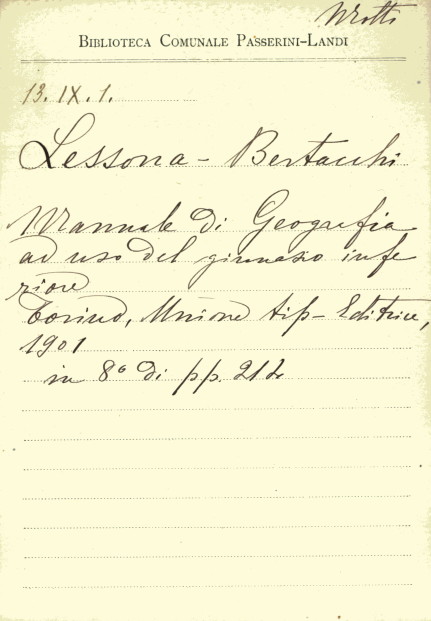 BIBLIOTECA COMUNALE PASSERINI-LANDI
13. IX. 1.
Lessona - Bertacchi
Manuale di Geografia
ad uso del ginnasio infe
riore
Torino, Unione tip-Editrice,
1901
in 8° di pp. 212